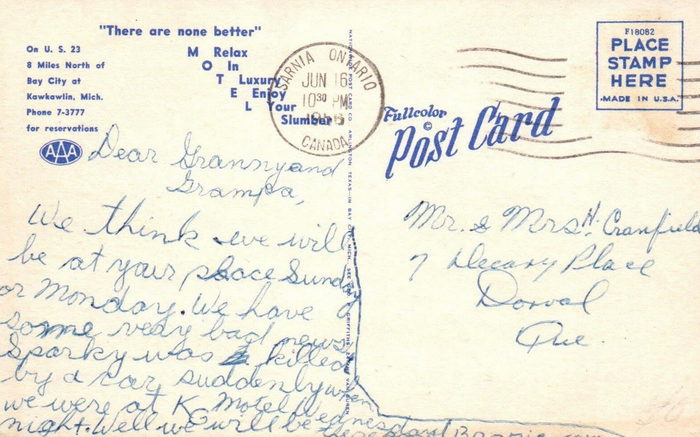 "There are none better"
On U. S. 23
8 Miles North of
Bay City at
Kawkawlin, Mich.
Phone 7-3777
for reservations
M Relax
O In
T Luxury
E Enjoy
L Your
Slumber
AAA
SARNIA ONTARIO
JUN 16
10 30 PM
CANADA
F18082
PLACE
STAMP
HERE
MADE IN U.S.A.
Fullcolor
©
Post Card
Dear Granny and
Grampa,
We think we will
be at your place Sunday
or Monday. We have
some very bad news.
Sparky was killed
by a car suddenly when
we were at K. Motel Wednesday
night. Well we will be
Mr. & Mrs H. Cranfield
7 Decary Place
Dorval
Que